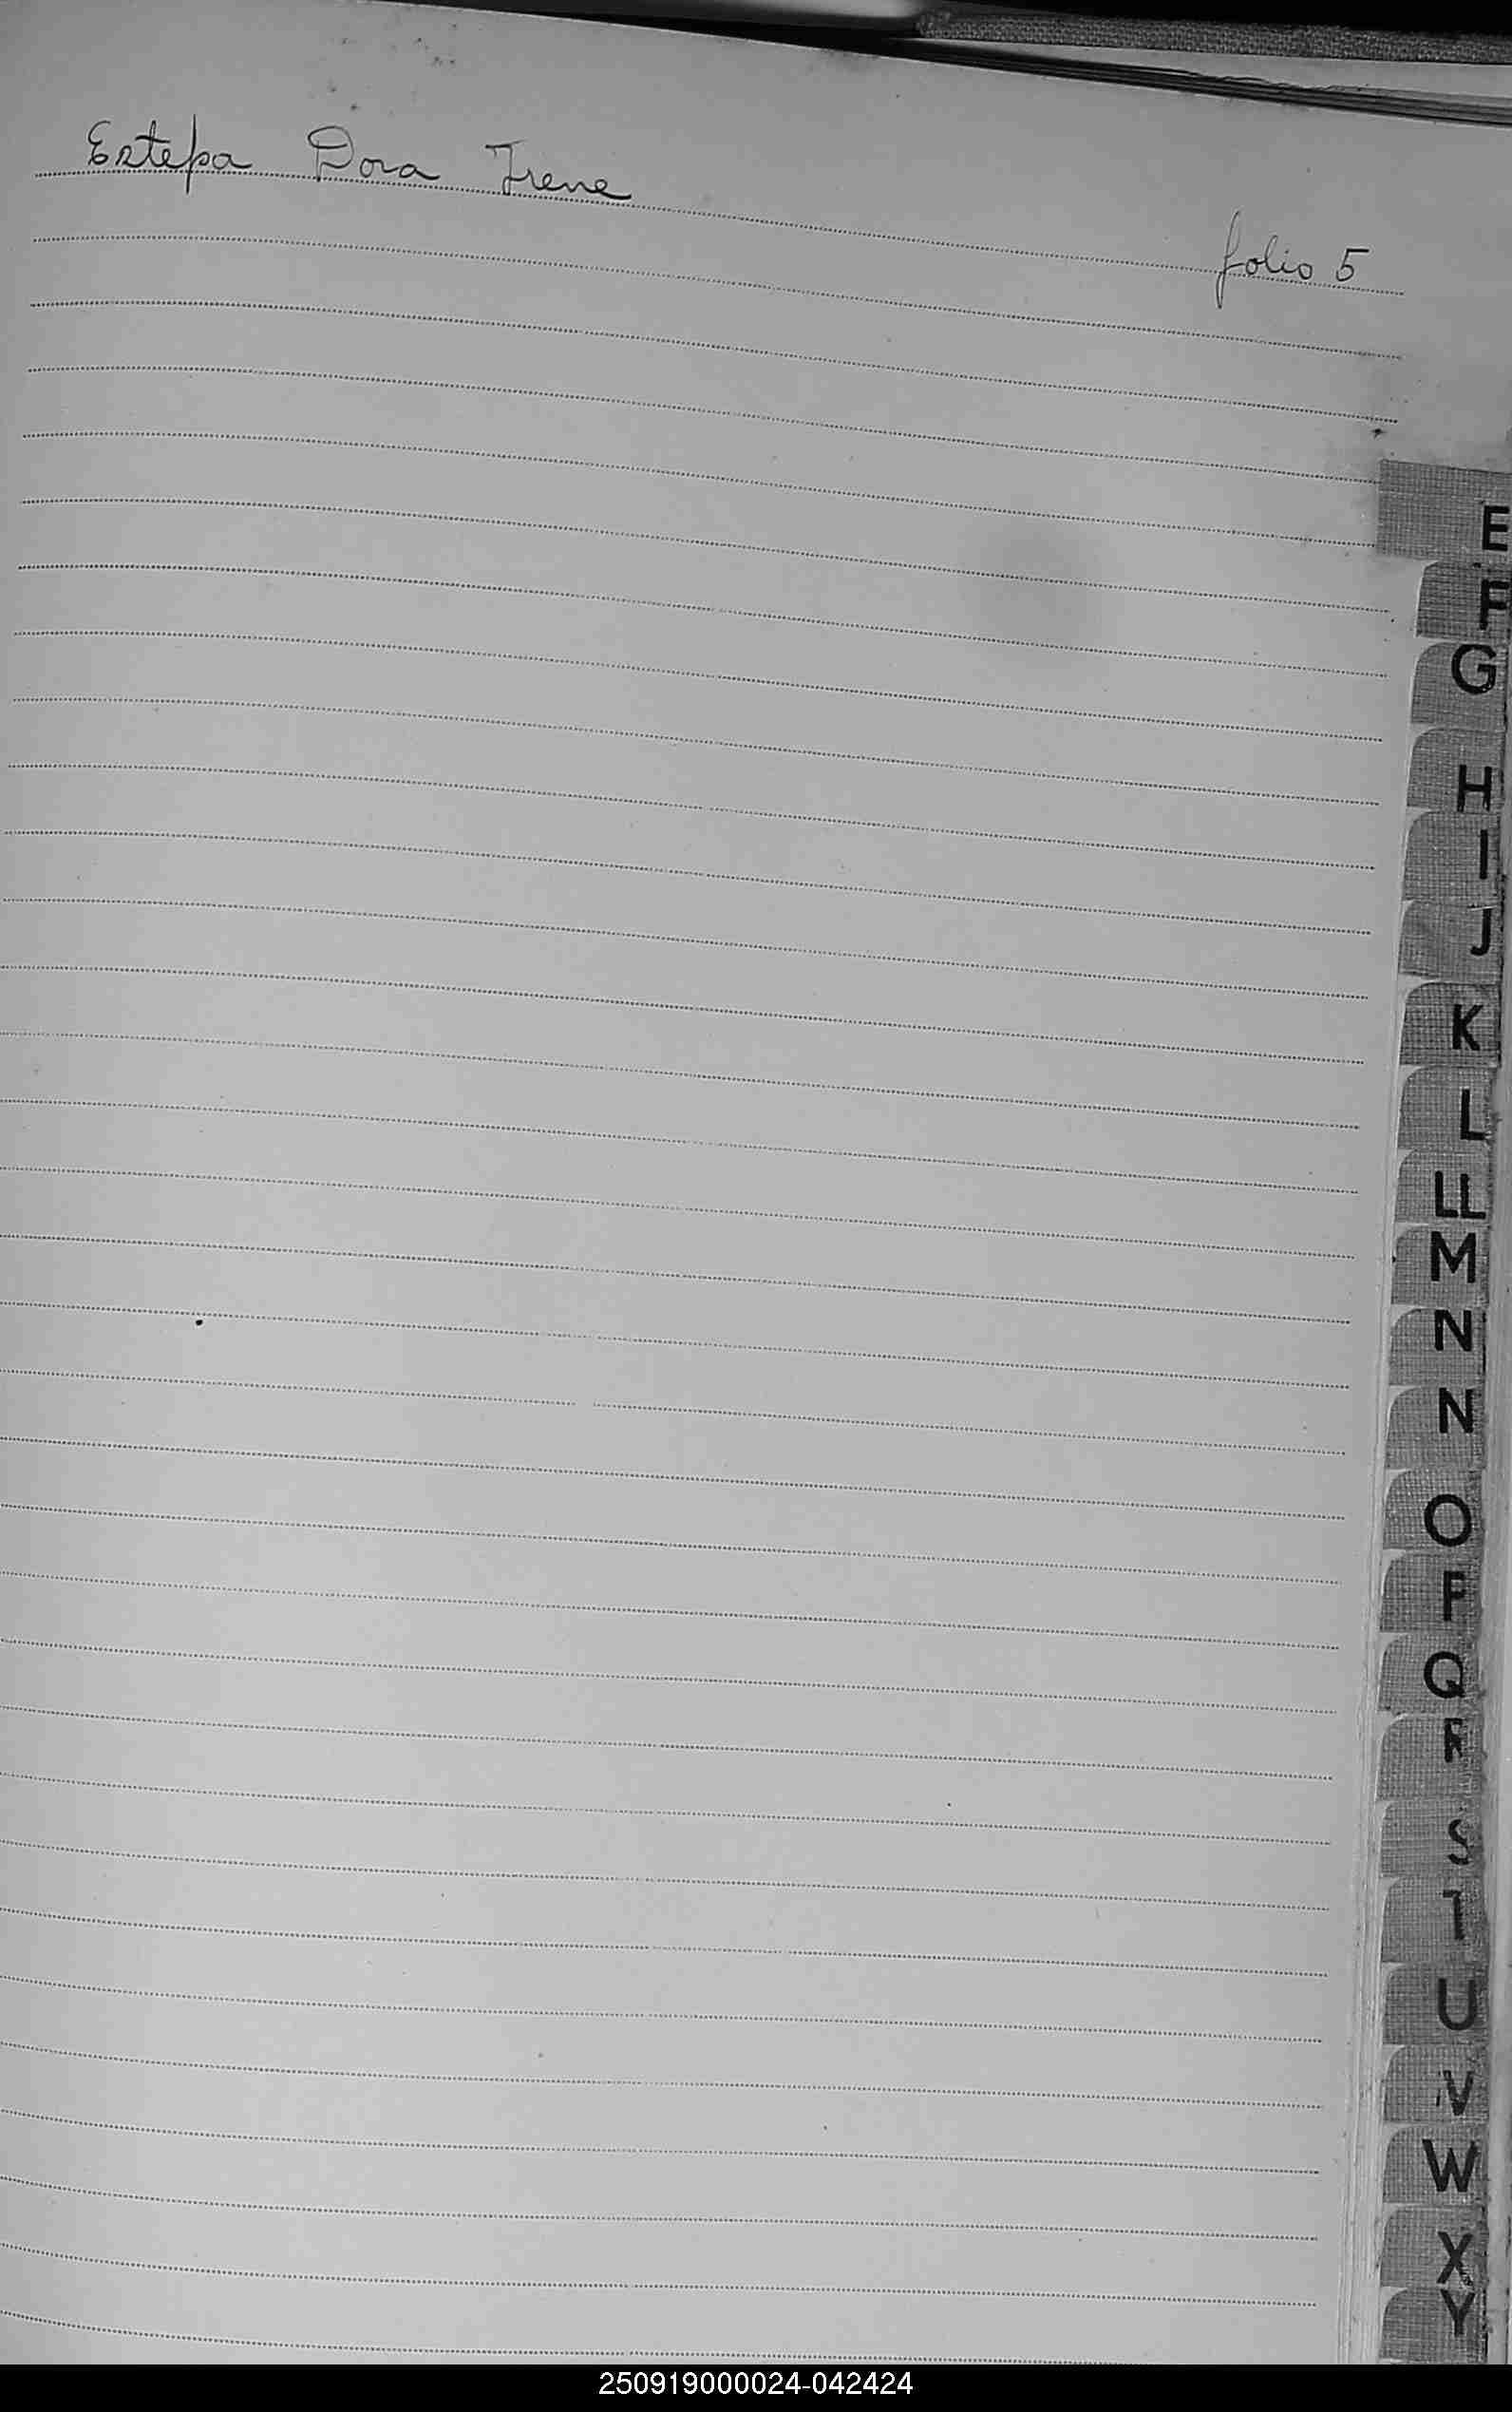 Estepa Dora Irene
folio 5
E
F
G
H
I
J
K
L
LL
M
N
N
O
P
Q
R
S
T
U
V
W
X
Y
250919000024-042424